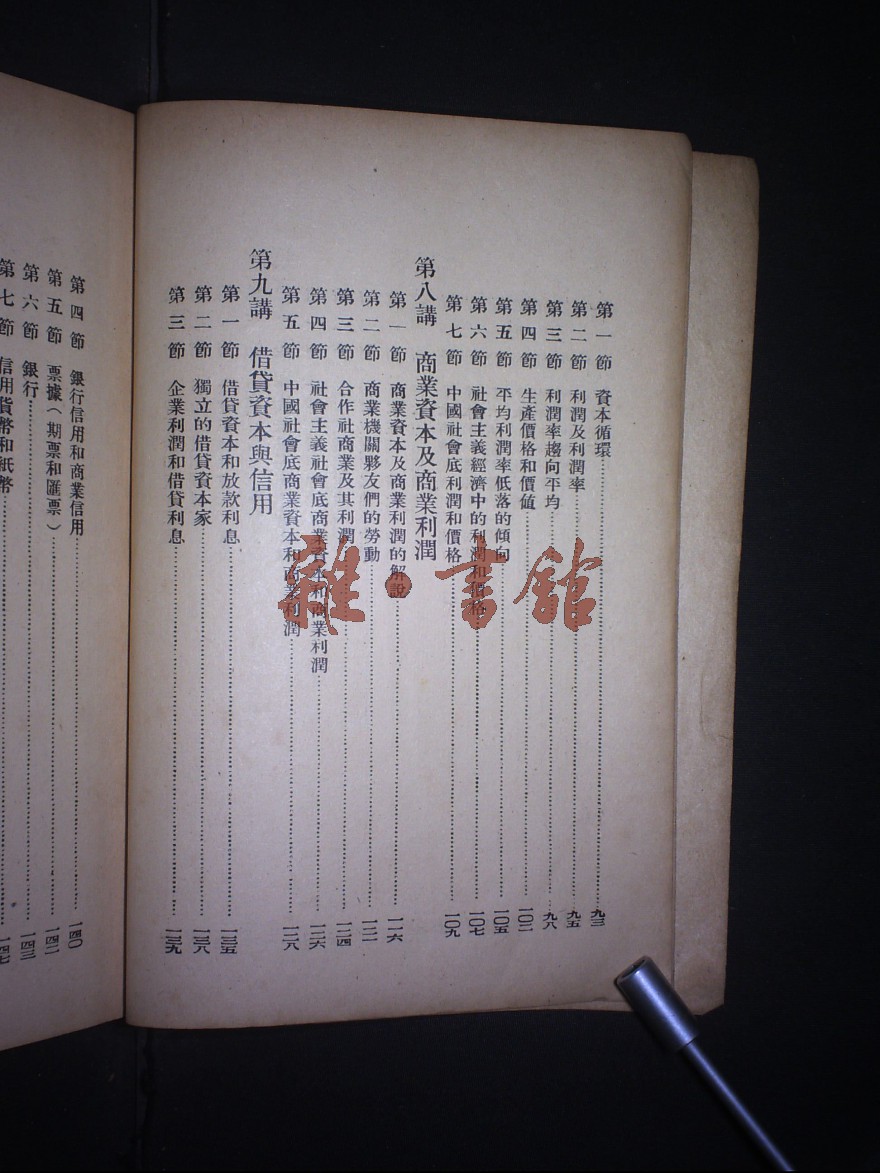 第一節 資本循環……九三
第二節 利潤及利潤率……九五
第三節 利潤率趨向平均……九八
第四節 生產價格和價值……一〇二
第五節 平均利潤率低落的傾向……一〇五
第六節 社會主義經濟中的利潤和價格……一〇七
第七節 中國社會底利潤和價格……一〇九
第八講 商業資本及商業利潤
第一節 商業資本及商業利潤的解說……一一六
第二節 商業機關夥友們的勞動……一二一
第三節 合作社商業及其利潤……一二四
第四節 社會主義社會底商業資本和商業利潤……一二六
第五節 中國社會底商業資本和商業利潤……一二八
第九講 借貸資本與信用
第一節 借貸資本和放款利息……一三五
第二節 獨立的借貸資本家……一三八
第三節 企業利潤和借貸利息……一三九
第四節 銀行信用和商業信用……一四〇
第五節 票據（期票和匯票）……一四二
第六節 銀行……一四三
第七節 信用貨幣和紙幣……一四七
雜·書館